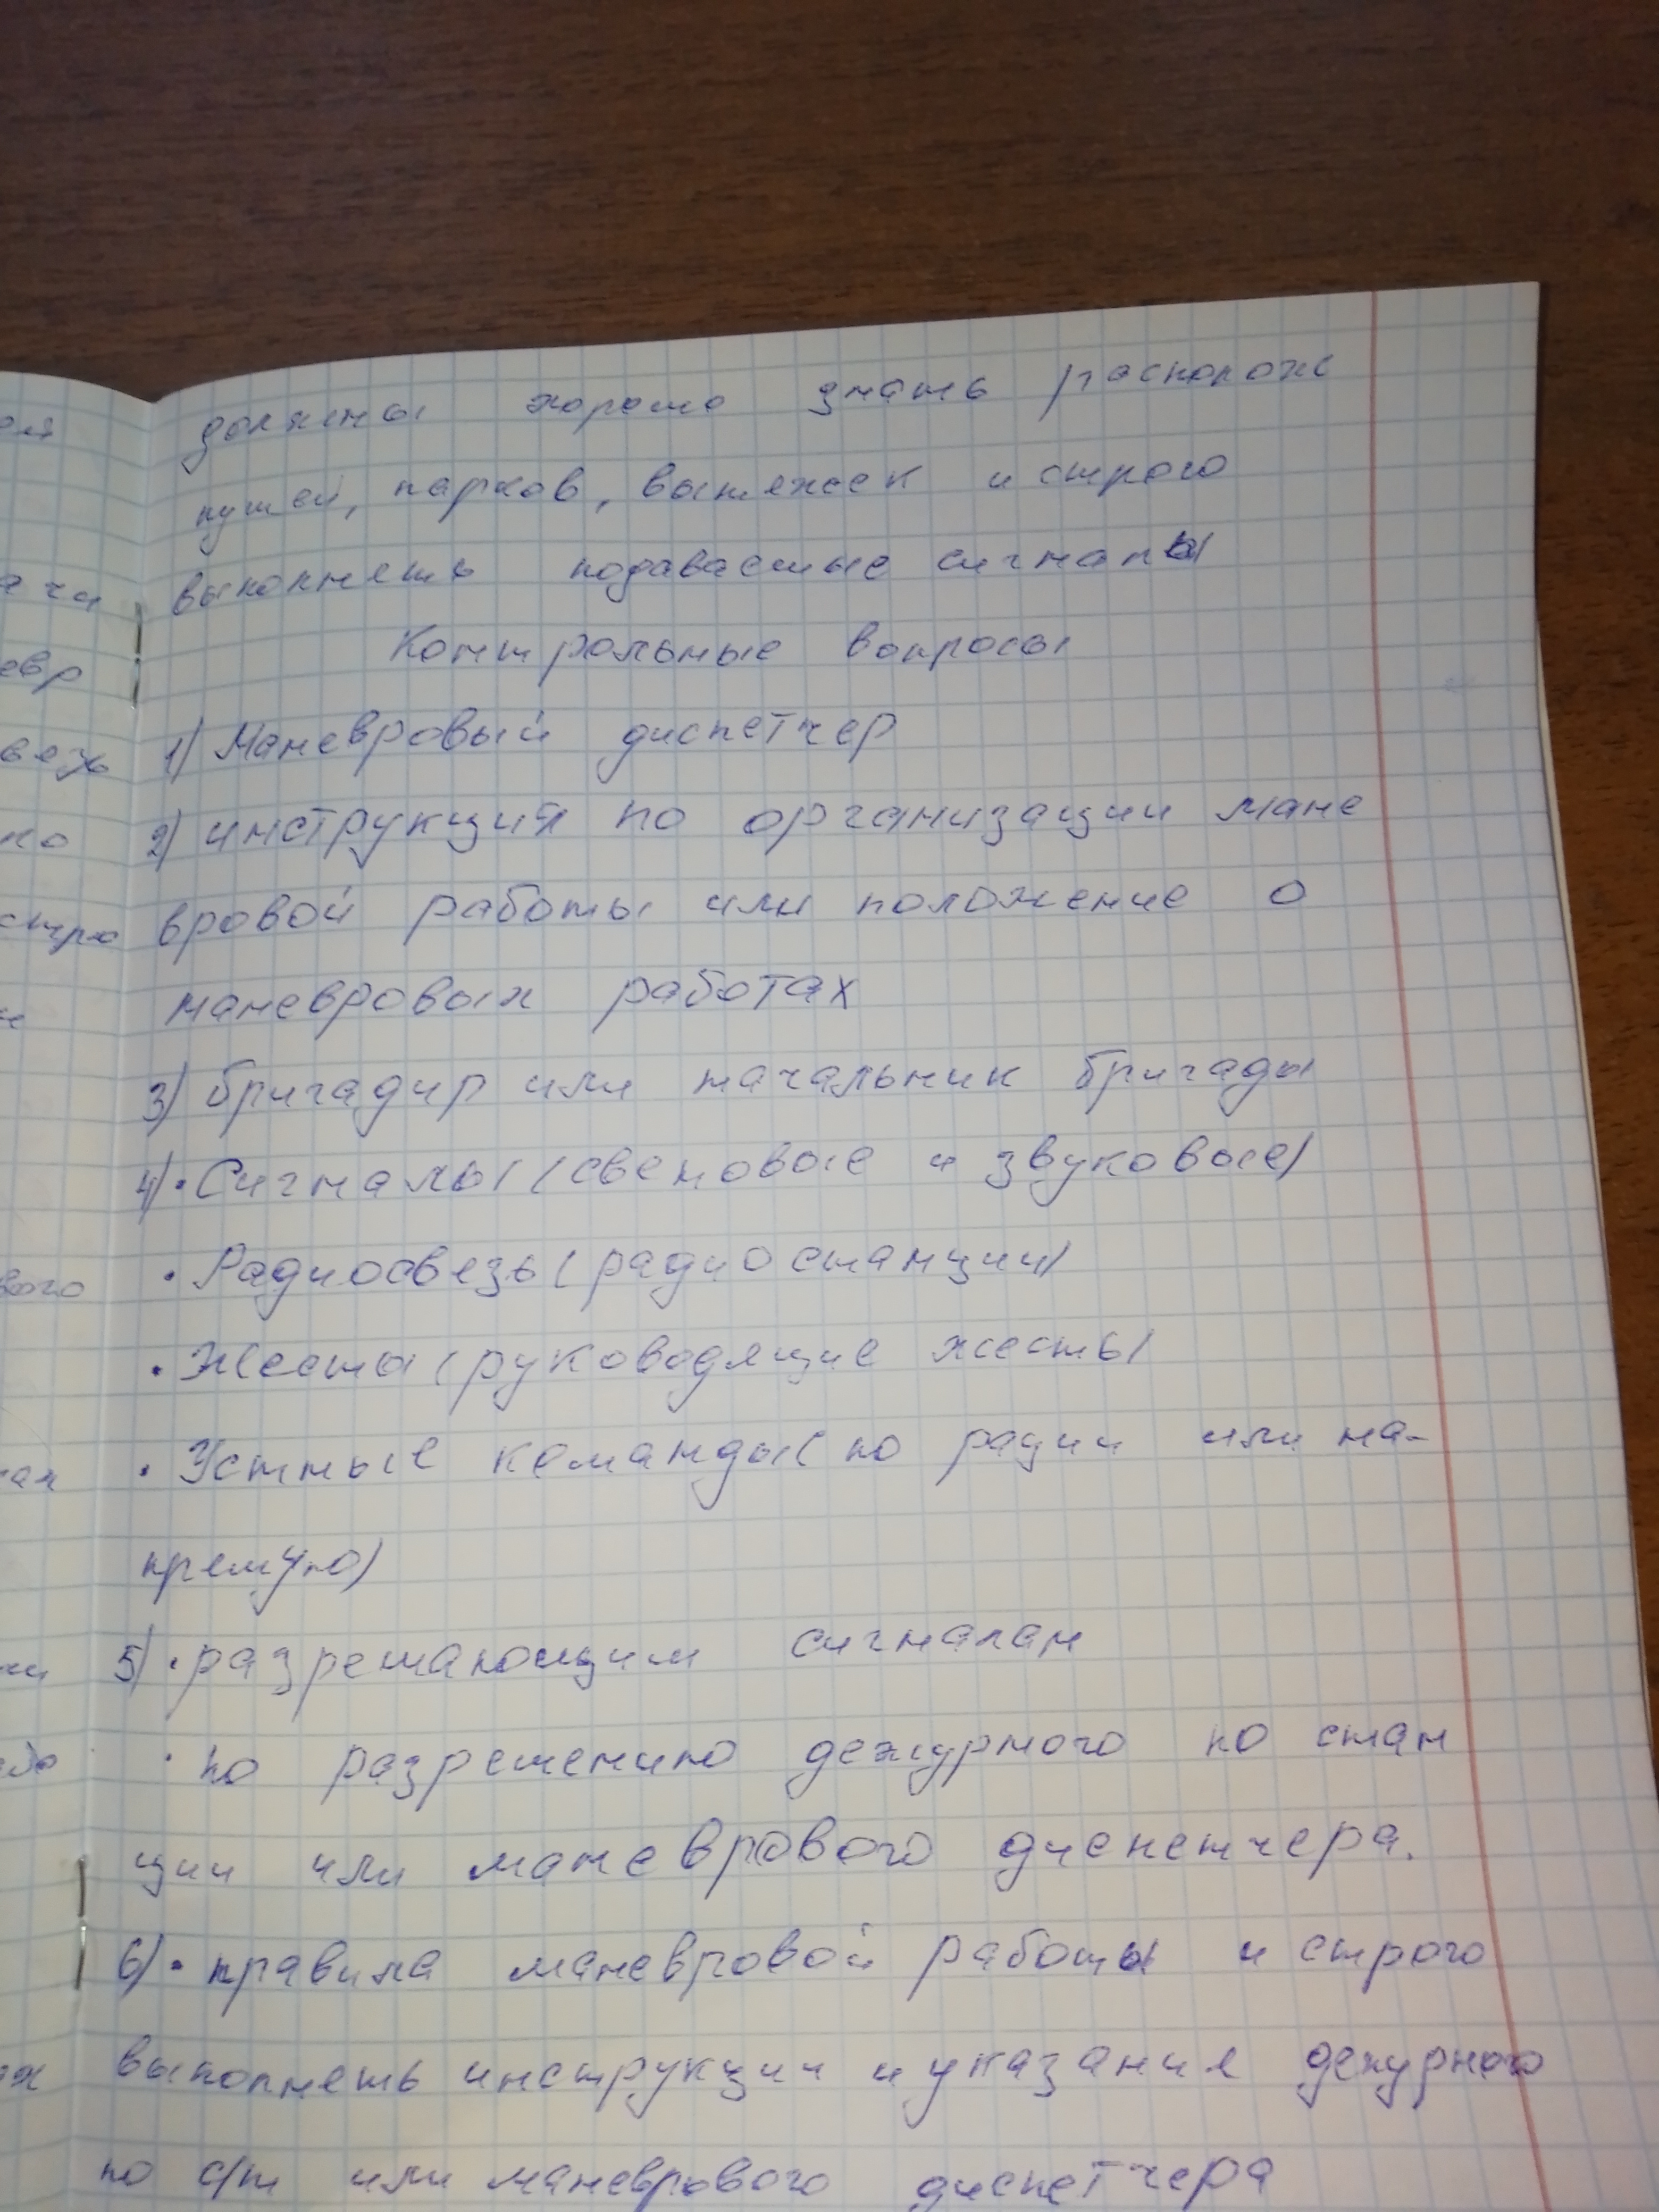 должны хорошо знать располож
путей, парков, вытяжек и строго
выполнеть подаваемые сигналы
Контрольные вопросы
1) Маневровый диспетчер
2) инструкция по организации мане
вровой работы или положение о
маневровых работах
3) бригадир или начальник бригады
4) • Сигналы (световые и звуковые)
• Радиосвезь (радиостанции)
• Жесты (руководящие жесты)
• Устные команды (по рации или на-
премую)
5) • разрешающим сигналам
• по разрешению дежурного по стан
ции или маневрового диспетчера.
6) • правила маневровой работы и строго
выполнеть инструкции и указания дежурного
по с/т или маневрового диспетчера